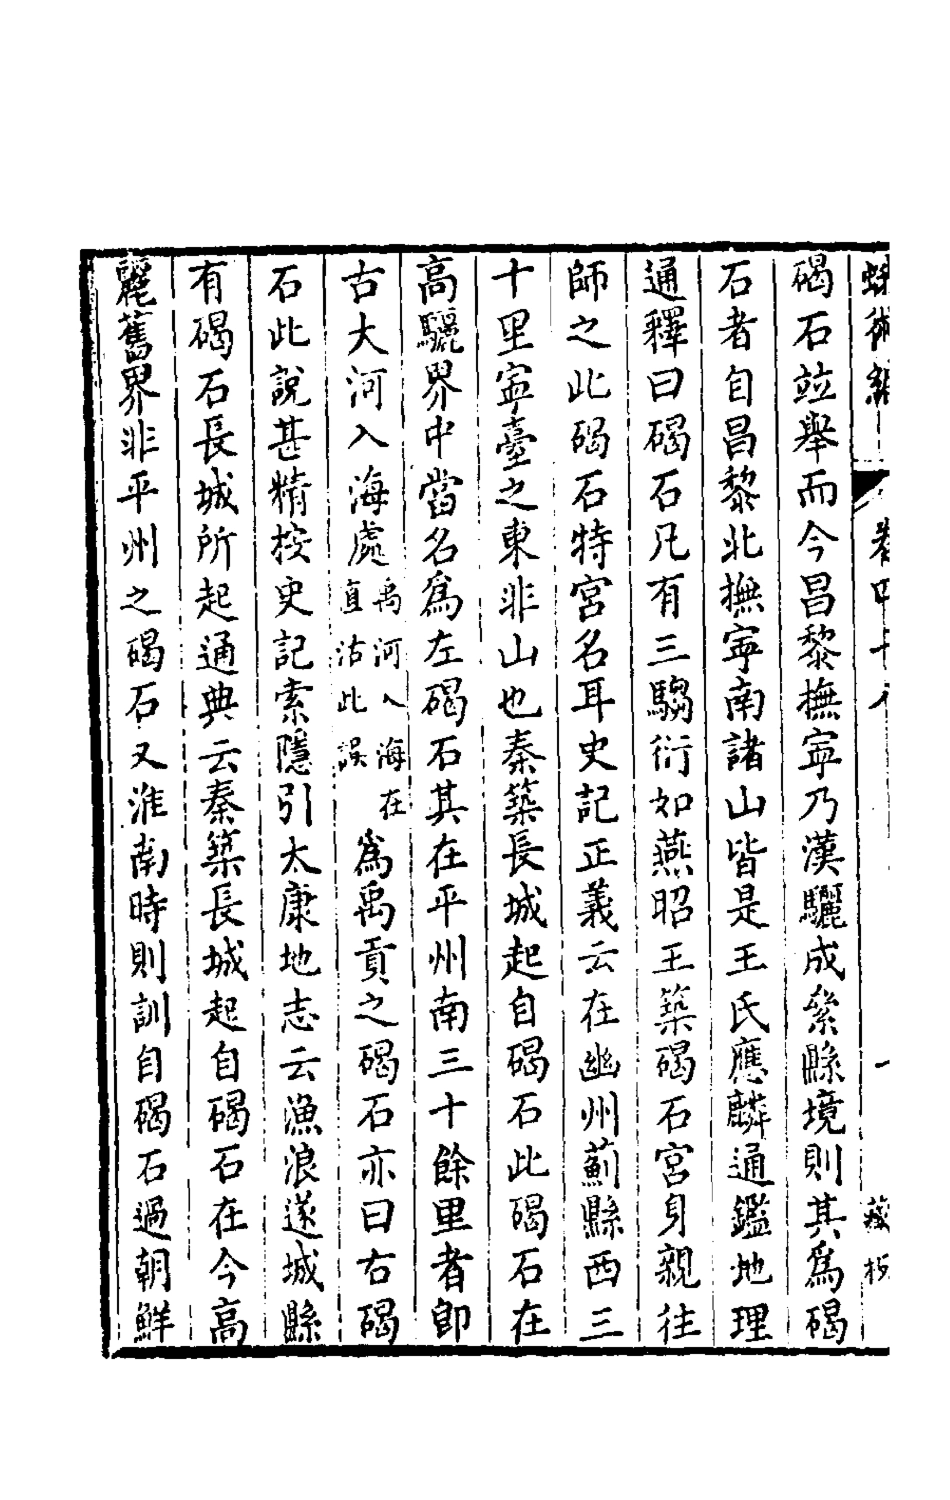 碣石竝舉而今昌黎撫寧乃漢驪成絫縣境則其爲碣
石者自昌黎北撫寧南諸山皆是王氏應麟通鑑地理
通釋曰碣石凡有三騶衍如燕昭王築碣石宮身親往
師之此碣石特宮名耳史記正義云在幽州薊縣西三
十里寧臺之東非山也秦築長城起自碣石此碣石在
高驪界中當名爲左碣石其在平州南三十餘里者卽
古大河入海處禹河入海在直沽此誤爲禹貢之碣石亦曰右碣
石此說甚精按史記索隱引太康地志云漁浪遂城縣
有碣石長城所起通典云秦築長城起自碣石在今高
麗舊界非平州之碣石又淮南時則訓自碣石過朝鮮